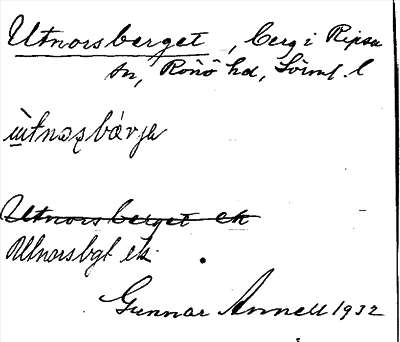 Utnorsberget, berg i Ripsa
sn, Rönö hd, Sörml. l
ùtnɷʂbárjə
Utnorsberget ek
Utnorsbgt ek.
Gunnar Annell 1932